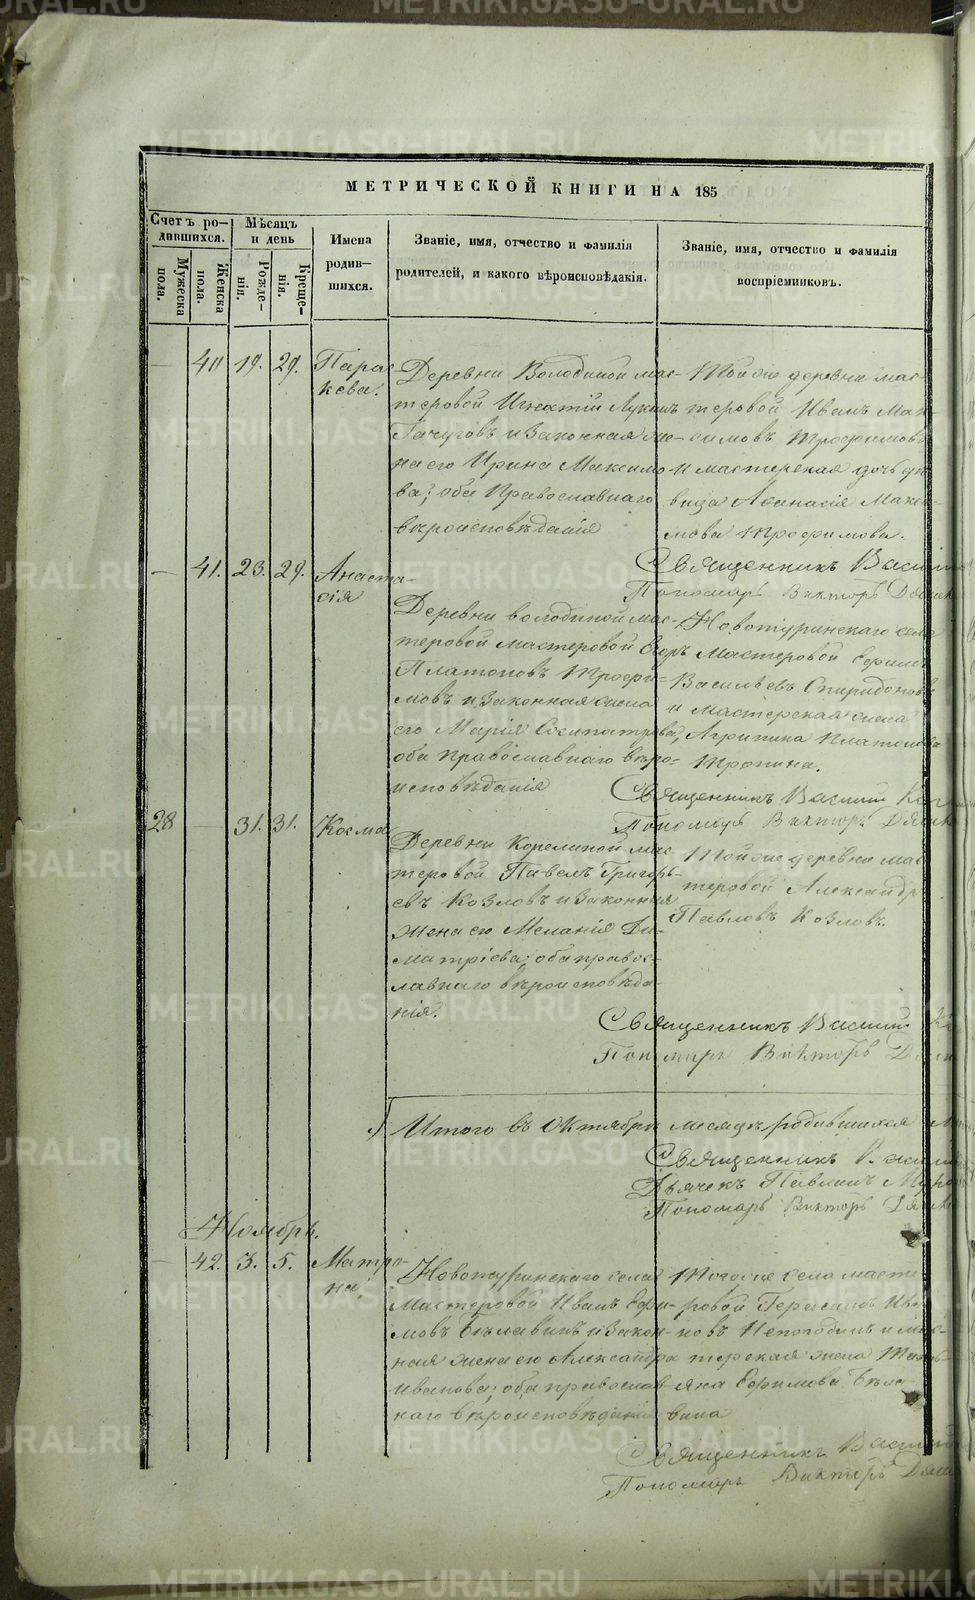 МЕТРИЧЕСКОЙ КНИГИ НА 185
Счетъ ро-
дившихся.
Мужеска
пола.
Женска
пола.
Мѣсяцъ
и день
Рожде-
нія.
Креще-
нія.
Имена
родив-
шихся.
Званіе, имя, отчество и фамилія
родителей, и какого вѣроисповѣданія.
Званіе, имя, отчество и фамилія
воспріемниковъ.
40 19. 29. Параске
кева.
Деревни Володиной мас-
теровой Игнатій Лукинъ
Гачуговъ и законная же-
на его Ирина Максимо-
ва; оба Православнаго
вѣроисповѣданія
Той же деревни мас-
теровой Иванъ Мак-
симовъ Трофимовъ
и мастерская дочь дѣ-
вица Афанасія Макси-
мова Трофимова.
Священникъ Василій
Пономарь Викторъ
41. 23. 29. Анаста-
сія
Деревни Володиной мас-
теровой мастеровой Егоръ
Платоновъ Трофи-
мовъ и законная жена
его Марія
оба православнаго вѣро-
исповѣданія
Новотуринскаго села
Мастеровой Ефимъ
Васильевъ Спиридоновъ
и мастерская жена
Агрипина Платонова
Тропина.
Священникъ Василій
Пономарь Викторъ
28 31. 31. Косма
Деревни Корелиной мас-
теровой Павелъ Григорь-
евъ Козловъ и законная
жена его Меланія Ди-
митріева; оба правос-
лавнаго вѣроисповѣда-
нія.
Той же деревни мас-
теровой Александръ
Павловъ Козловъ.
Священникъ Василій
Пономарь Викторъ
Итого въ Октябрѣ месяцѣ родившихся
Священникъ
Дьячекъ Павлинъ
Пономарь Викторъ
Ноябрь.
42. 3. 5. Матро-
на
Новотуринскаго села
Мастеровой Иванъ Ефи-
мовъ Бѣлавинъ и закон-
ная жена его Александра
Иванова; оба православ-
наго вѣроисповѣданія
Тогоже села масте-
ровой Герасимъ Ива-
новъ Непогодинъ и мас-
терская жена Тать-
яна Ефимова Бѣла-
вина
Священникъ Василій
Пономарь Викторъ
METRIKI.GASO-URAL.RU